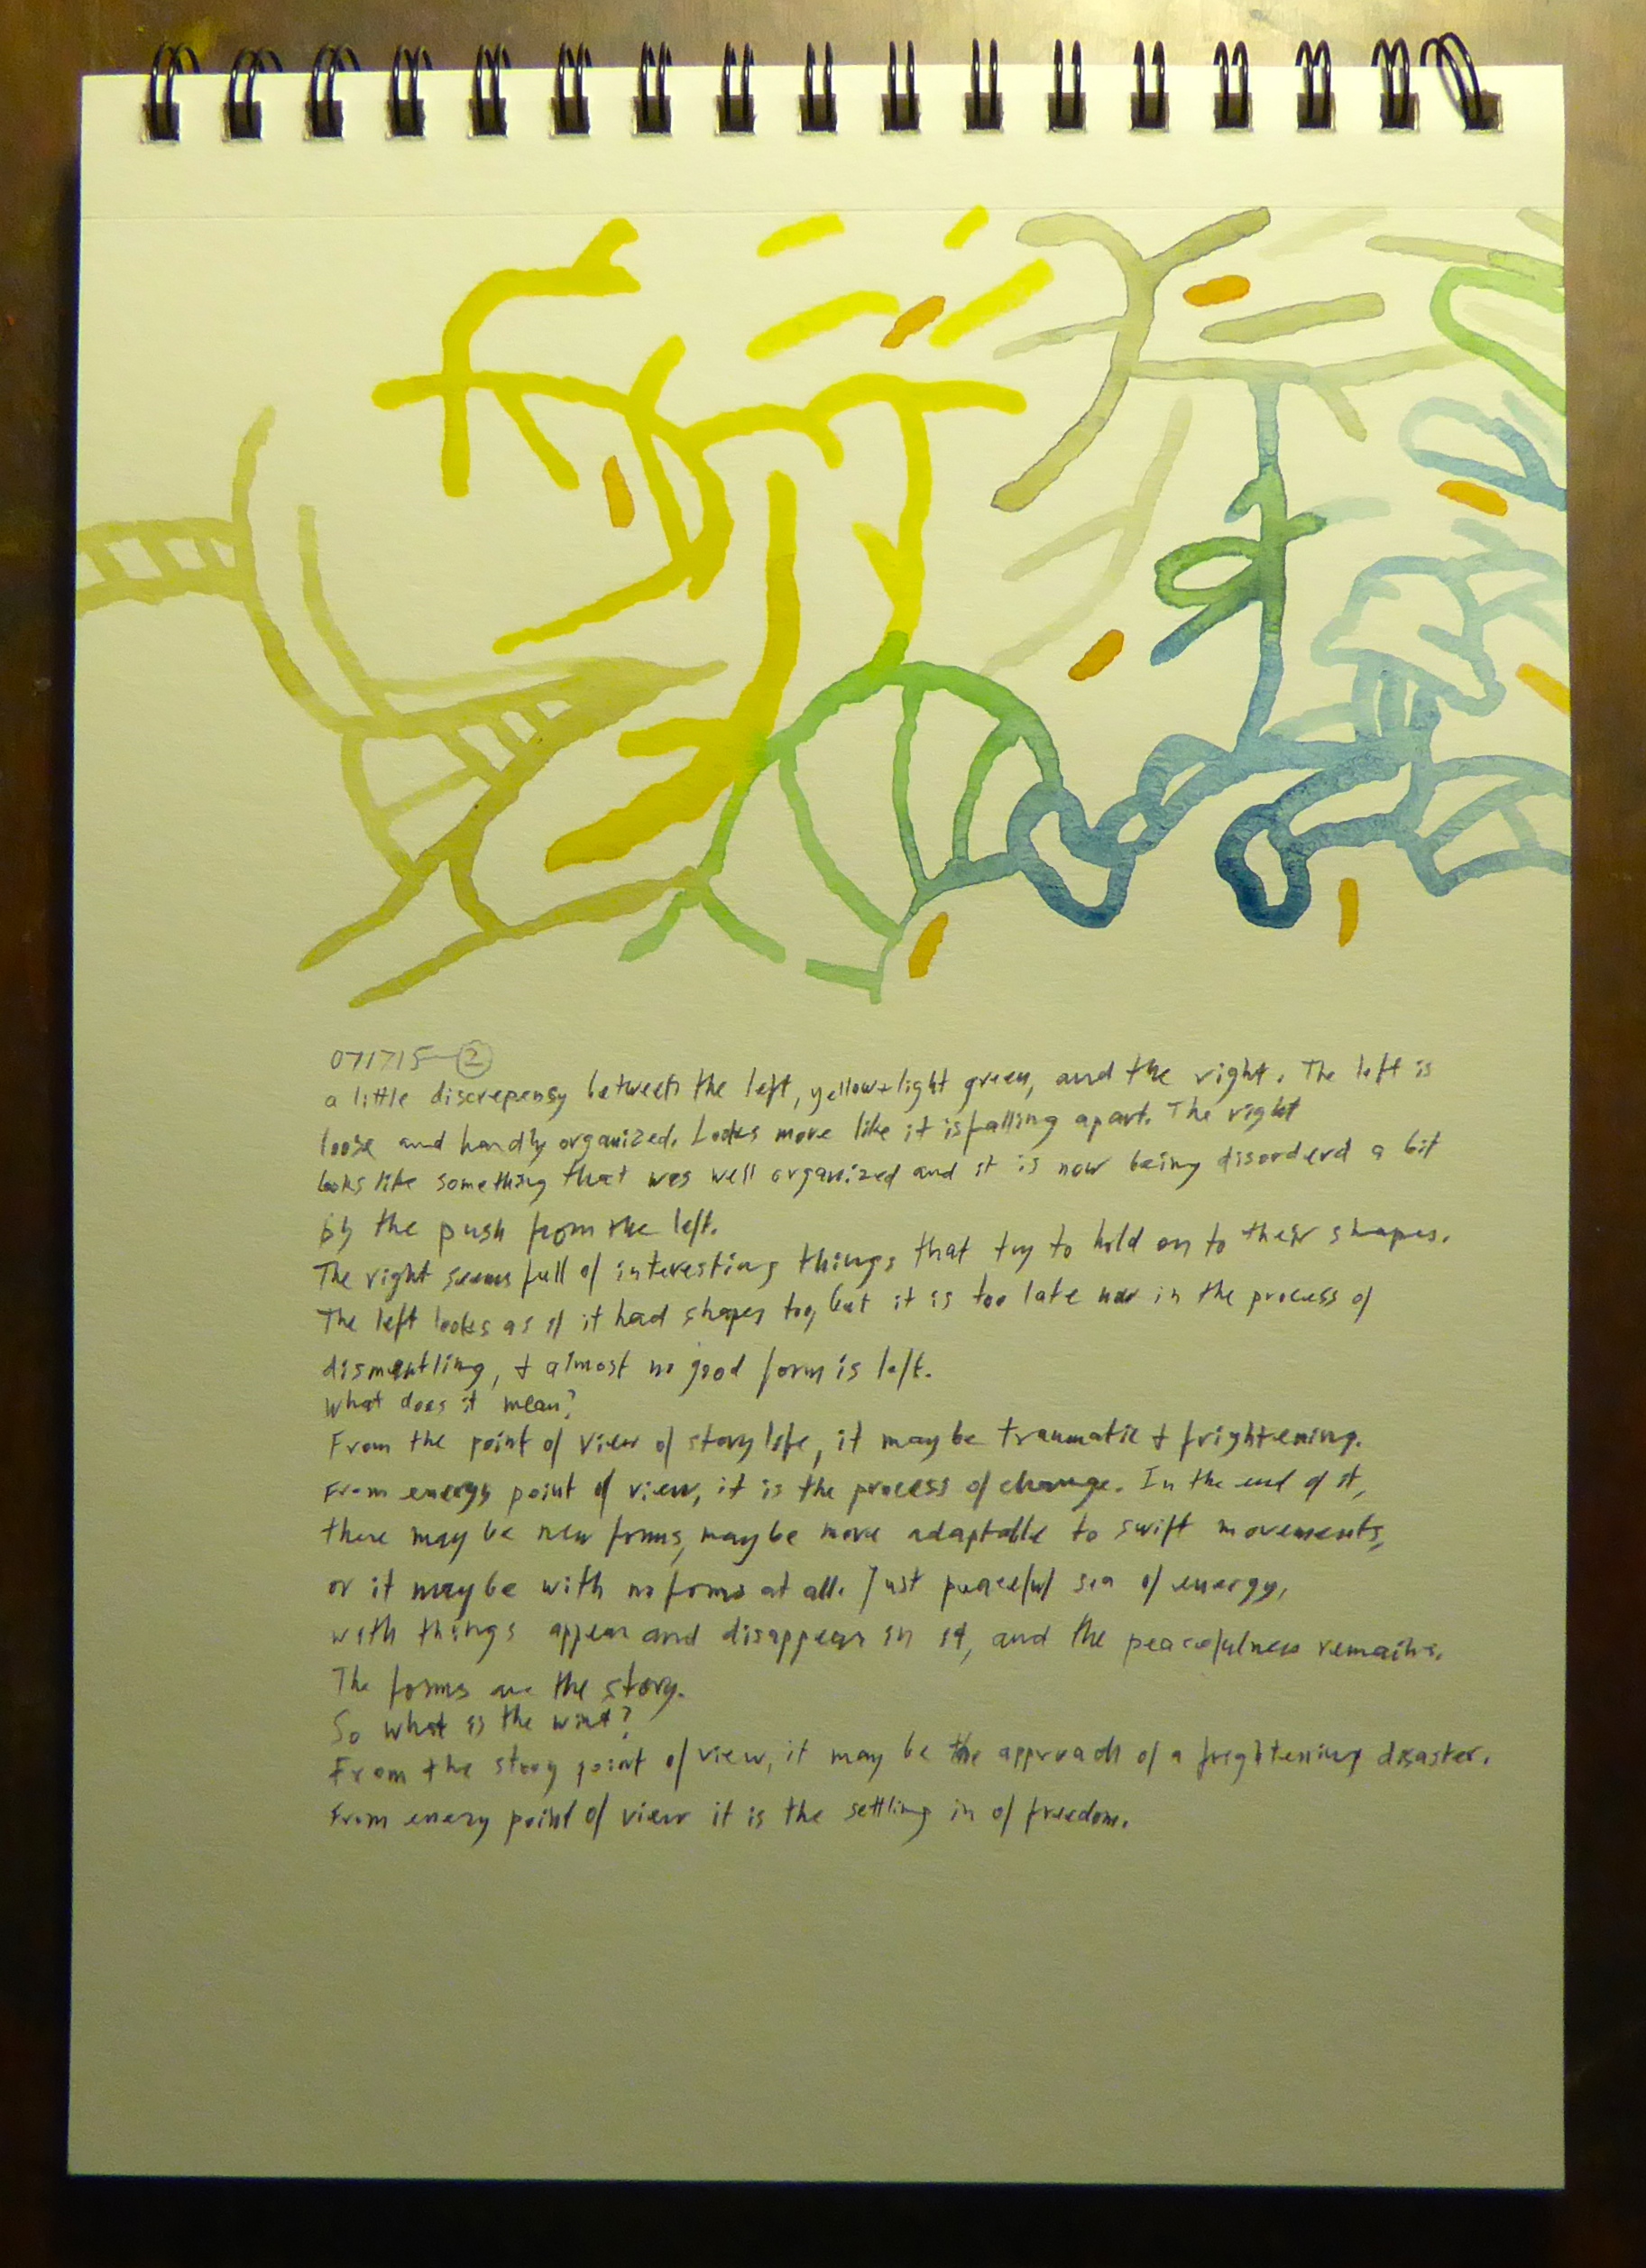 071715-②
a little discrepensy between the left, yellow+light green, and the right. The left is
loose and hardly organized. Looks more like it is falling apart. The right
looks like something that was well organized and it is now being disorderd a bit
by the push from the left.
The right seems full of interesting things that try to hold on to their shapes.
The left looks as if it had shapes too, but it is too late now in the process of
dismantling, + almost no good form is left.
What does it mean?
From the point of view of story life, it may be traumatic + frightening.
From energy point of view, it is the process of change. In the end of it,
there may be new forms, may be more adaptable to swift movements,
or it may be with no forms at all. Just peaceful sea of energy,
with things appear and disappear in it, and the peacefulness remains.
The forms are the story.
So what is the wind?
From the story point of view, it may be the approach of a frightening disaster.
From energy point of view it is the settling in of freedom.